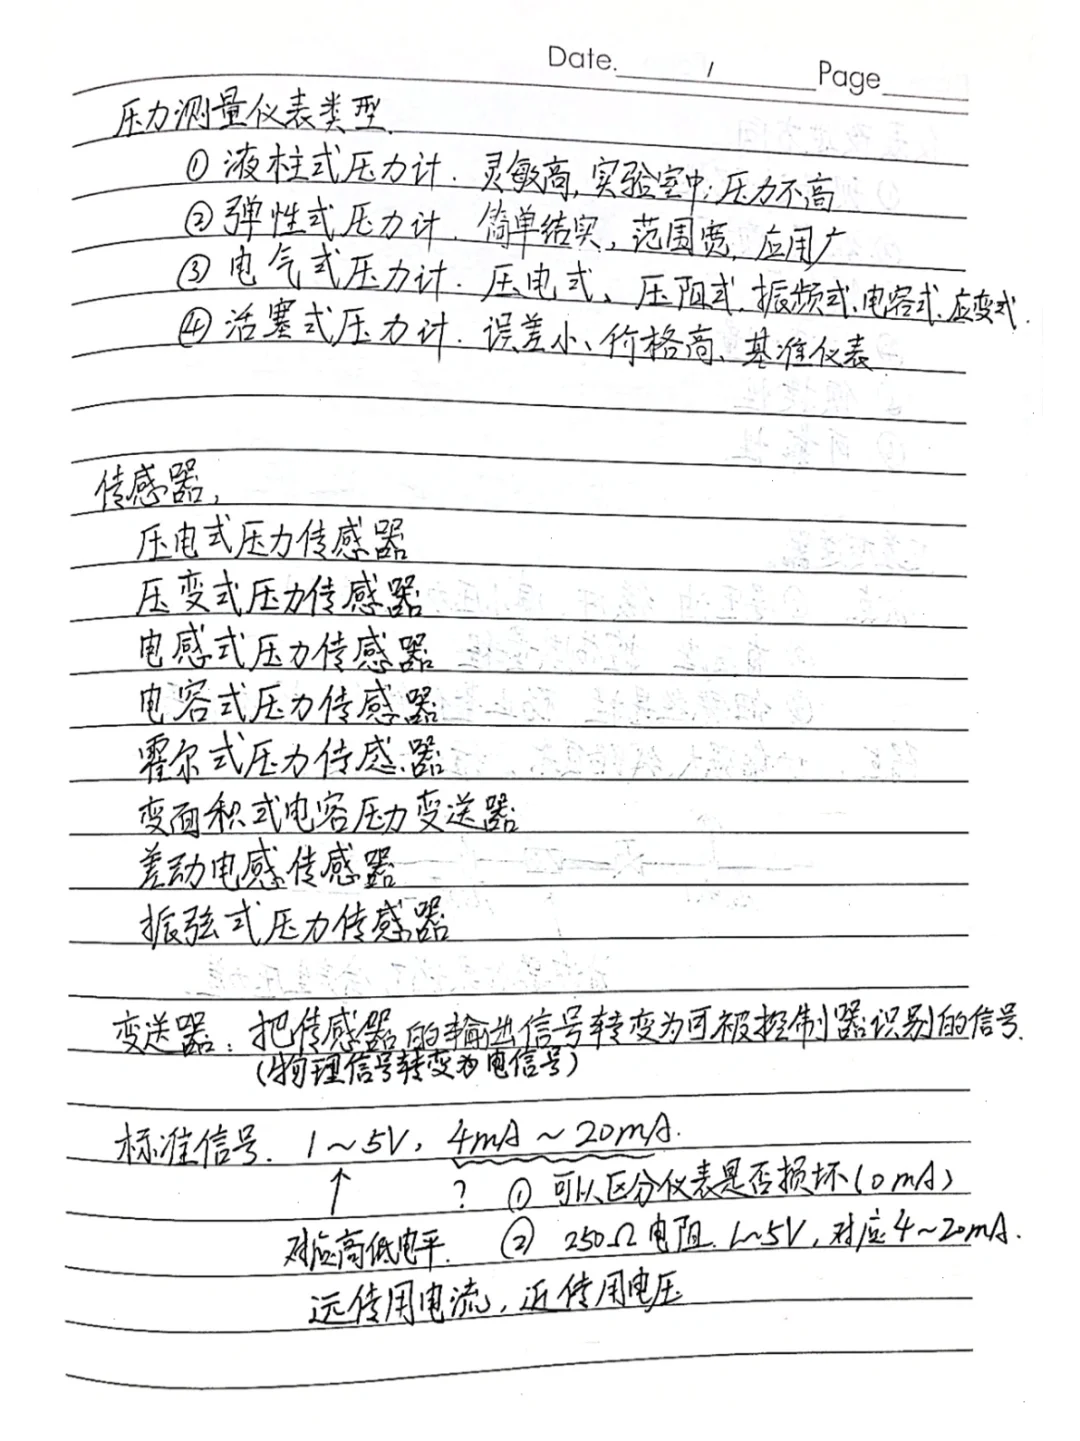 Date. / Page
压力测量仪表类型.
① 液柱式压力计. 灵敏高, 实验室中; 压力不高
② 弹性式压力计. 简单结实, 范围宽, 应用广
③ 电气式压力计. 压电式、压阻式、振频式、电容式、应变式.
④ 活塞式压力计. 误差小、价格高、基准仪表
传感器,
压电式压力传感器
压变式压力传感器
电感式压力传感器
电容式压力传感器
霍尔式压力传感器
变面积式电容压力变送器
差动电感传感器
振弦式压力传感器
变送器: 把传感器的输出信号转变为可被控制器识别的信号.
(物理信号转变为电信号)
标准信号. 1~5V, 4mA~20mA.
↑ ? ① 可以区分仪表是否损坏(0mA)
对应高低电平. ② 250Ω电阻. 1~5V, 对应4~20mA.
远传用电流, 近传用电压